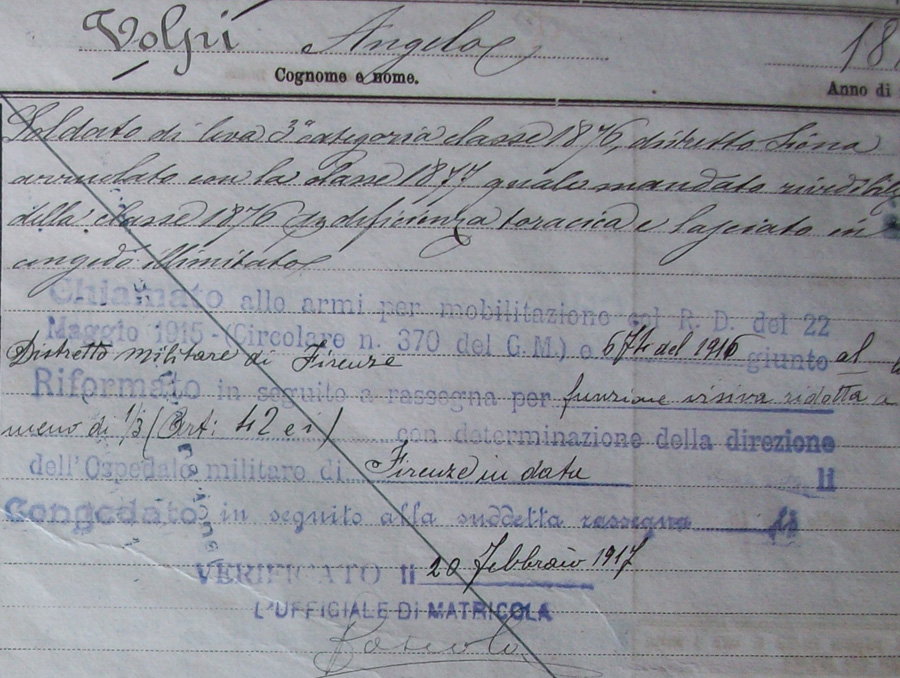 Volpi Angelo 18
Cognome e nome.
Anno di
Soldato di leva 3ª categoria classe 1876, distretto Siena
arruolato con la classe 1877 quale mandato rivedibile
della classe 1876 per deficienza toracica e lasciato in
congedo illimitato
Chiamato alle armi per mobilitazione col R. D. del 22
Maggio 1915 - (Circolare n. 370 del G. M.) e 674 del 1916 giunto al
Distretto militare di Firenze
Riformato in seguito a rassegna per funzione visiva ridotta a
meno di 1/3 (Art: 42 e i) con determinazione della direzione
dell'Ospedale militare di Firenze in data li
Congedato in seguito alla suddetta rassegna li
VERIFICATO li 20 Febbraio 1917
L'UFFICIALE DI MATRICOLA